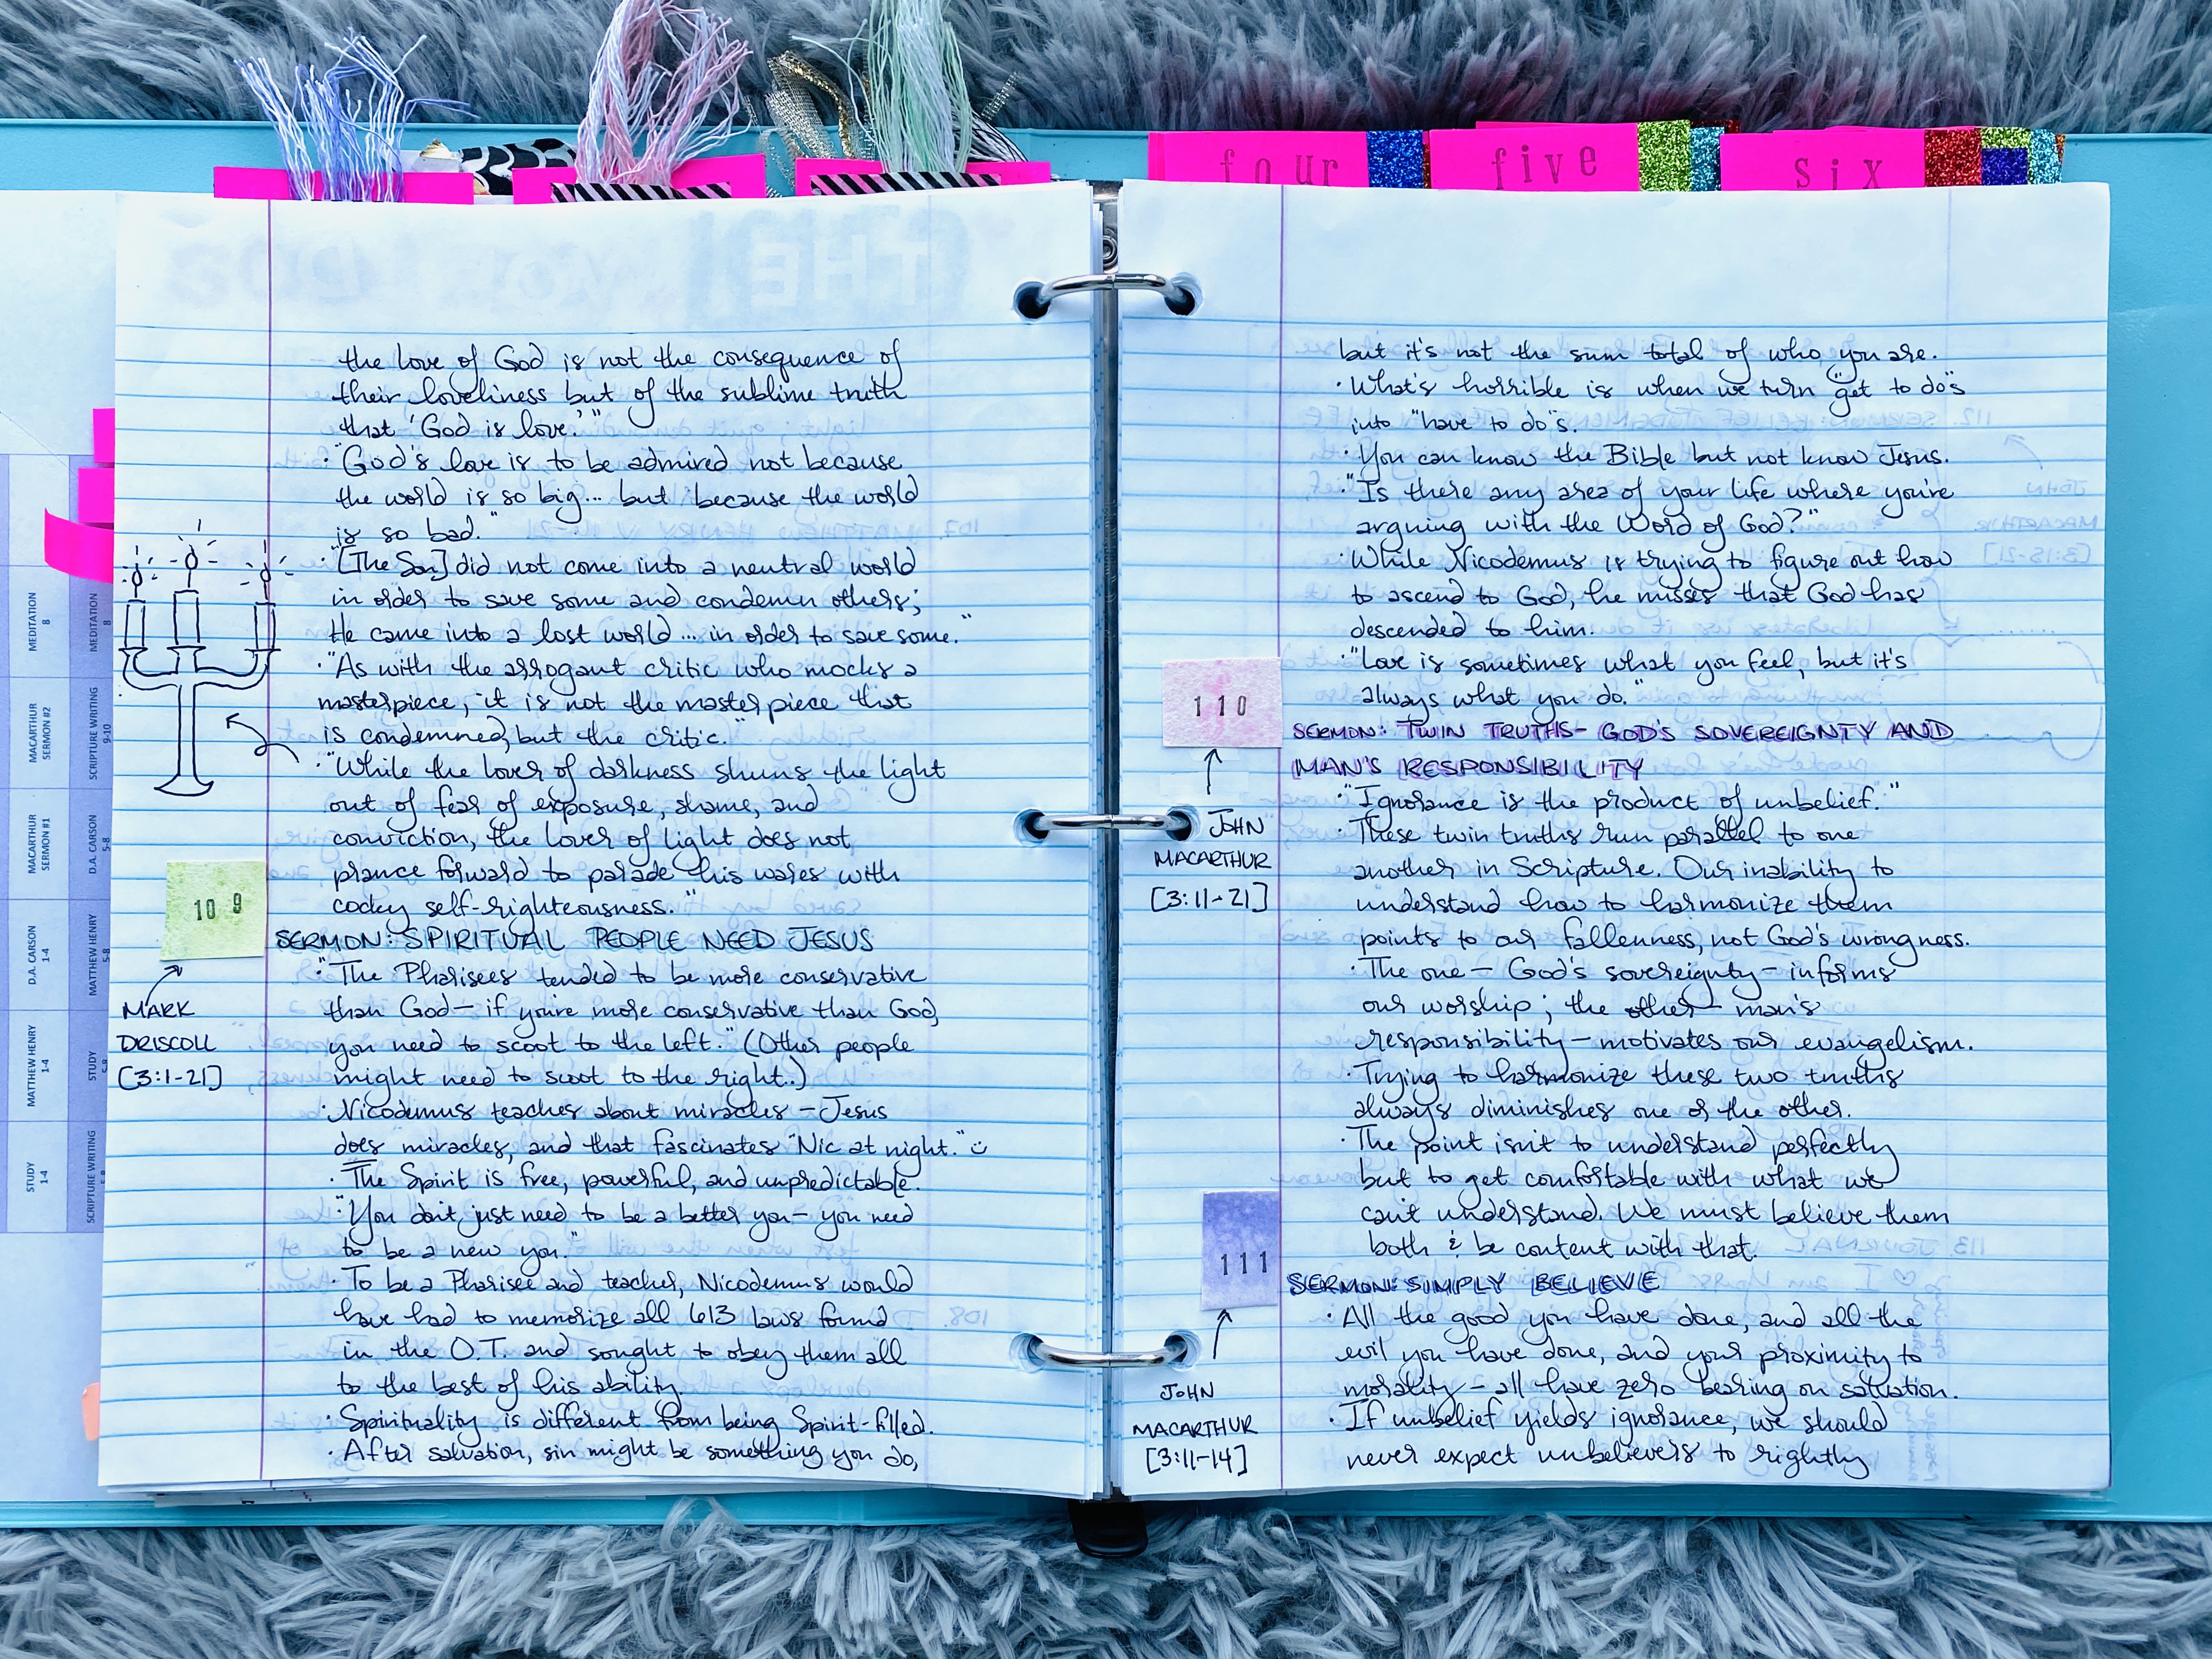 four
five
six
the love of God is not the consequence of
their loveliness but of the sublime truth
that 'God is love.'"
· "God's love is to be admired not because
the world is so big... but because the world
is so bad."
· "[The Son] did not come into a neutral world
in order to save some and condemn others;
He came into a lost world... in order to save some."
· "As with the arrogant critic who mocks a
masterpiece, it is not the masterpiece that
is condemned, but the critic."
· "While the lover of darkness shuns the light
out of fear of exposure, shame, and
conviction, the lover of light does not
prance forward to parade his wares with
cocky self-righteousness."
109
SERMON: SPIRITUAL PEOPLE NEED JESUS
MARK
DRISCOLL
[3:1-21]
· "The Pharisees tended to be more conservative
than God— if you're more conservative than God,
you need to scoot to the left." (Other people
might need to scoot to the right.)
· Nicodemus teaches about miracles — Jesus
does miracles, and that fascinates "Nic at night." ☺
· The Spirit is free, powerful, and unpredictable.
· "You don't just need to be a better you— you need
to be a new you."
· To be a Pharisee and teacher, Nicodemus would
have had to memorize all 613 laws found
in the O.T. and sought to obey them all
to the best of his ability.
· Spirituality is different from being Spirit-filled.
· After salvation, sin might be something you do,
but it's not the sum total of who you are.
· What's horrible is when we turn "get to do"s
into "have to do"s.
· You can know the Bible but not know Jesus.
· "Is there any area of your life where you're
arguing with the Word of God?"
· While Nicodemus is trying to figure out how
to ascend to God, he misses that God has
descended to him.
· "Love is sometimes what you feel, but it's
always what you do."
110
SERMON: TWIN TRUTHS- GOD'S SOVEREIGNTY AND
MAN'S RESPONSIBILITY
JOHN
MACARTHUR
[3:11-21]
· "Ignorance is the product of unbelief."
· These twin truths run parallel to one
another in Scripture. Our inability to
understand how to harmonize them
points to our fallenness, not God's wrongness.
· The one — God's sovereignty — informs
our worship; the other— man's
responsibility — motivates our evangelism.
· Trying to harmonize these two truths
always diminishes one or the other.
· The point isn't to understand perfectly
but to get comfortable with what we
can't understand. We must believe them
both & be content with that.
111
SERMON: SIMPLY BELIEVE
JOHN
MACARTHUR
[3:11-14]
· All the good you have done, and all the
evil you have done, and your proximity to
morality — all have zero bearing on salvation.
· If unbelief yields ignorance, we should
never expect unbelievers to rightly
MEDITATION
8
MACARTHUR
SERMON #2
MACARTHUR
SERMON #1
D.A. CARSON
1-4
MATTHEW HENRY
1-4
STUDY
1-4
MEDITATION
8
SCRIPTURE WRITING
9-10
D.A. CARSON
5-8
MATTHEW HENRY
5-8
STUDY
5-8
SCRIPTURE WRITING